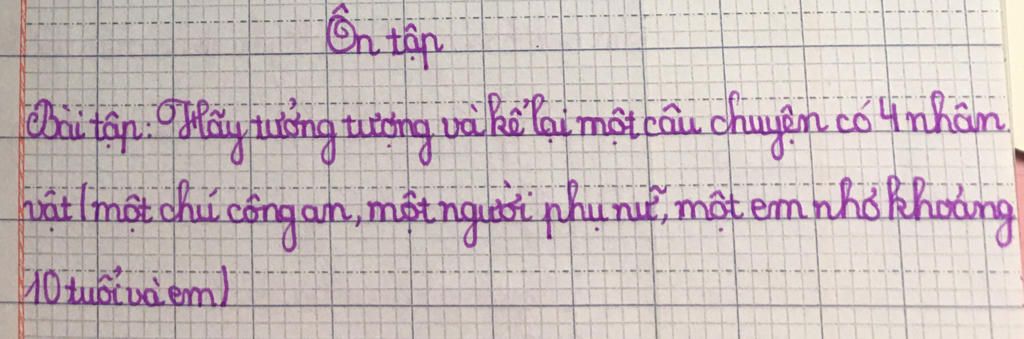 Ôn tập
Bài tập: Hãy tưởng tượng và kể lại một câu chuyện có 4 nhân
vật (một chú công an, một người phụ nữ, một em nhỏ khoảng
10 tuổi và em)